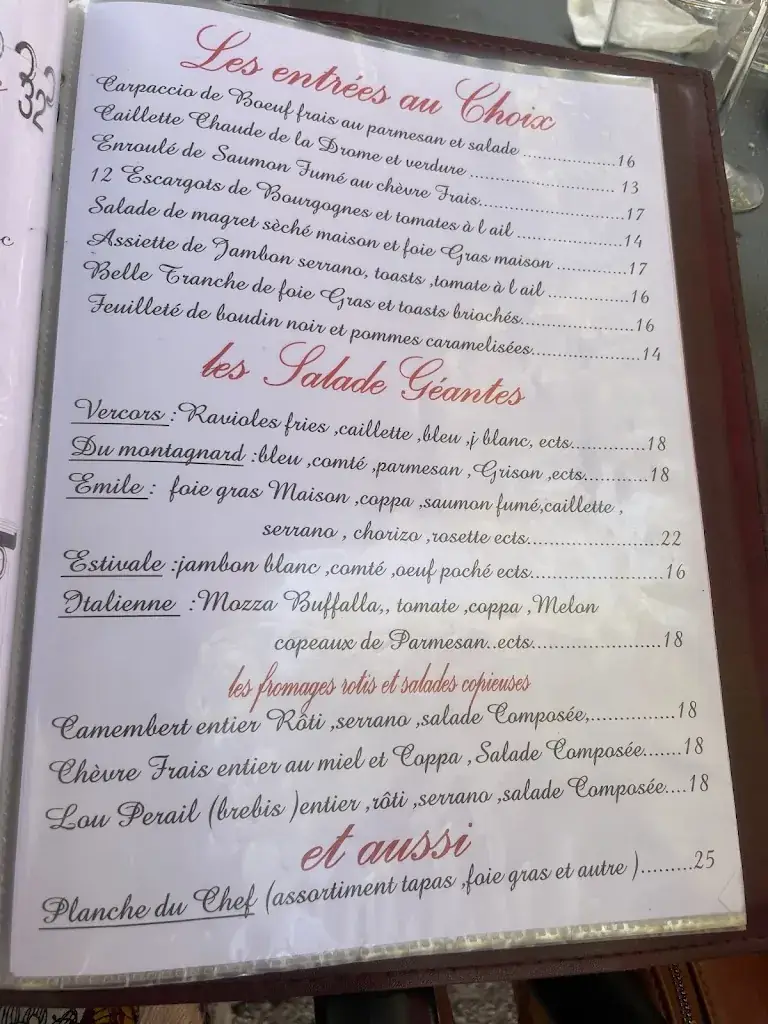 Les entrées au Choix
Carpaccio de Boeuf frais au parmesan et salade ..................16
Caillette Chaude de la Drome et verdure ........................... 13
Enroulé de Saumon Fumé au chèvre Frais...........................17
12 Escargots de Bourgognes et tomates à l ail .....................14
Salade de magret sèché maison et foie Gras maison .............17
Assiette de Jambon serrano, toasts ,tomate à l ail ................16
Belle Tranche de foie Gras et toasts briochés.....................16
Feuilleté de boudin noir et pommes caramelisées....................14
les Salade Géantes
Vercors :Ravioles fries ,caillette ,bleu ,j blanc, ects.............18
Du montagnard :bleu ,comté ,parmesan ,Grison ,ects...........18
Emile : foie gras Maison ,coppa ,saumon fumé,caillette ,
serrano , chorizo ,rosette ects.......................22
Estivale :jambon blanc ,comté ,oeuf poché ects.......................16
Italienne :Mozza Buffalla,, tomate ,coppa ,Melon
copeaux de Parmesan..ects......................18
les fromages rotis et salades copieuses
Camembert entier Rôti ,serrano ,salade Composée,...............18
Chèvre Frais entier au miel et Coppa , Salade Composée.......18
Lou Perail (brebis )entier ,rôti ,serrano ,salade Composée....18
et aussi
Planche du Chef (assortiment tapas ,foie gras et autre ).........25